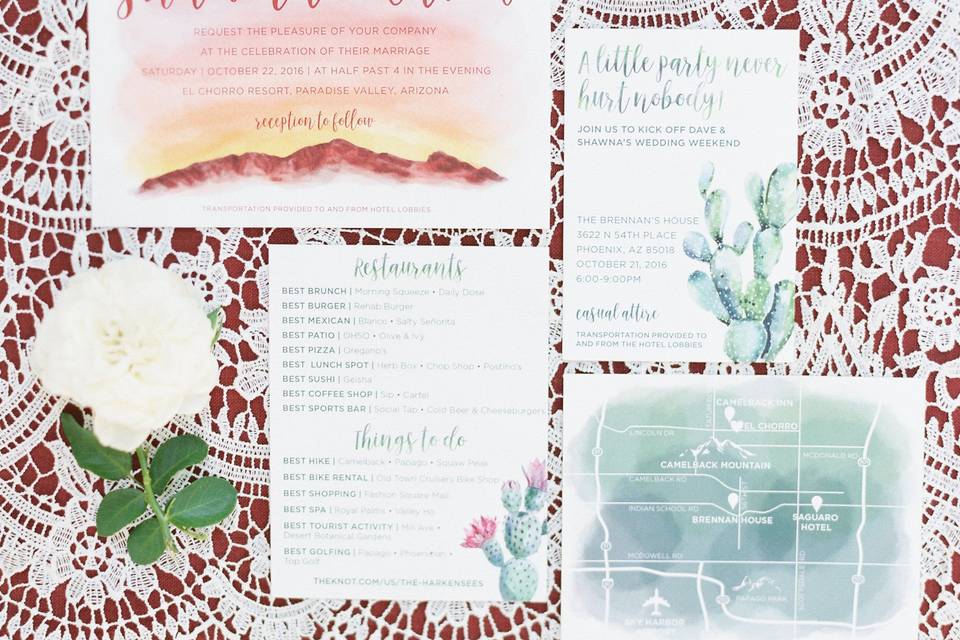 REQUEST THE PLEASURE OF YOUR COMPANY
AT THE CELEBRATION OF THEIR MARRIAGE
SATURDAY | OCTOBER 22, 2016 | AT HALF PAST 4 IN THE EVENING
EL CHORRO RESORT, PARADISE VALLEY, ARIZONA
reception to follow
TRANSPORTATION PROVIDED TO AND FROM HOTEL LOBBIES
A little party never
hurt nobody!
JOIN US TO KICK OFF DAVE &
SHAWNA'S WEDDING WEEKEND
THE BRENNAN'S HOUSE
3622 N 54TH PLACE
PHOENIX, AZ 85018
OCTOBER 21, 2016
6:00-9:00PM
casual attire
TRANSPORTATION PROVIDED TO
AND FROM THE HOTEL LOBBIES
Restaurants
BEST BRUNCH | Morning Squeeze • Daily Dose
BEST BURGER | Rehab Burger
BEST MEXICAN | Blanco • Salty Señorita
BEST PATIO | OHSO • Olive & Ivy
BEST PIZZA | Oregano's
BEST LUNCH SPOT | Herb Box • Chop Shop • Postino's
BEST SUSHI | Geisha
BEST COFFEE SHOP | Sip • Cartel
BEST SPORTS BAR | Social Tap • Cold Beer & Cheeseburgers
Things to do
BEST HIKE | Camelback • Papago • Squaw Peak
BEST BIKE RENTAL | Old Town Cruisers Bike Shop
BEST SHOPPING | Fashion Square Mall
BEST SPA | Royal Palms • Valley Ho
BEST TOURIST ACTIVITY | Mill Ave •
Desert Botanical Gardens
BEST GOLFING | Papago • Phoenician •
Top Golf
THEKNOT.COM/US/THE-HARKENSEES
CAMELBACK INN
EL CHORRO
LINCOLN DR
MCDONALD RD
CAMELBACK MOUNTAIN
CAMELBACK RD
INDIAN SCHOOL RD
BRENNAN HOUSE
SAGUARO
HOTEL
MCDOWELL RD
PAPAGO PARK
SKY HARBOR